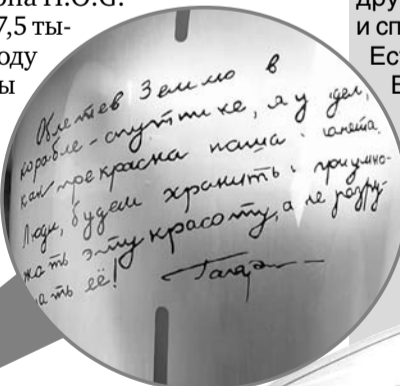 7,5 ты-
оду
ы
и сп
Ес
Облетев Землю в
корабле-спутнике, я у дел,
как прекрасна наша анета.
Люди, будем хранить приумно-
жать эту красоту, а не разру-
ать её!
Гагар